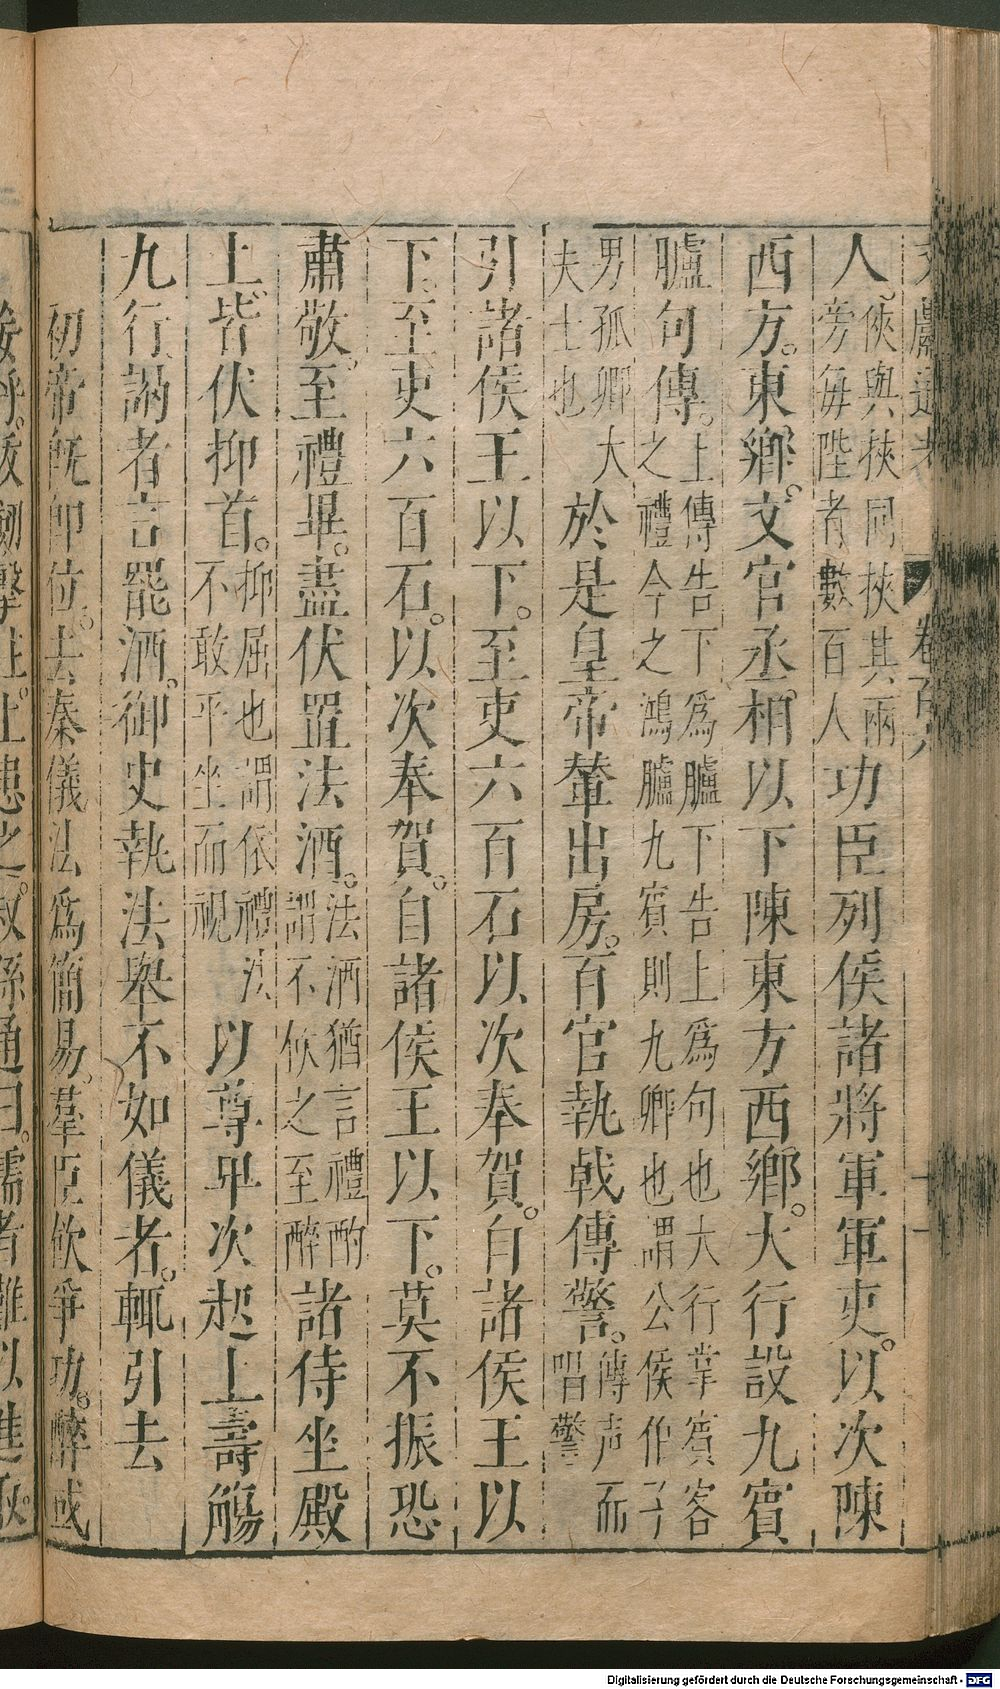 人。俠與挾同挾其兩旁每陛者數百人功臣列侯諸將軍軍吏。以次陳
西方。東鄉。文官丞相以下陳東方西鄉。大行設九賓
臚句傳。上傳告下爲臚下告上爲句也大行掌賓客之禮今之鴻臚九賓則九卿也謂公侯伯子
男孤卿大夫士也於是皇帝輦出房。百官執戟傳警。傳声而唱警
引諸侯王以下。至吏六百石以次奉賀。自諸侯王以
下。至吏六百石。以次奉賀。自諸侯王以下。莫不振恐
肅敬。至禮畢。盡伏置法酒。法酒猶言禮酌謂不飲之至醉諸侍坐殿
上。皆伏抑首。抑屈也謂依禮法不敢平坐而視以尊卑次起上壽觴
九行。謁者言罷酒。御史執法舉不如儀者。輒引去
初帝旣卽位。去秦儀法爲簡易。羣臣飲爭功。醉或
妄呼。拔劍擊柱。上患之。叔孫通曰。儒者難以進取。
Digitalisierung gefördert durch die Deutsche Forschungsgemeinschaft - DFG